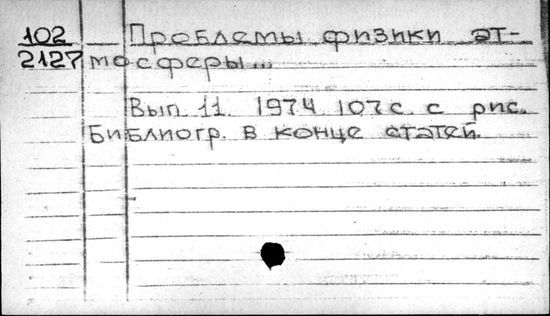 102 Проблемы физики ат-
2127 мосферы...
Вып. 11. 1974 107 с. с рис.
Библиогр. в конце статей.